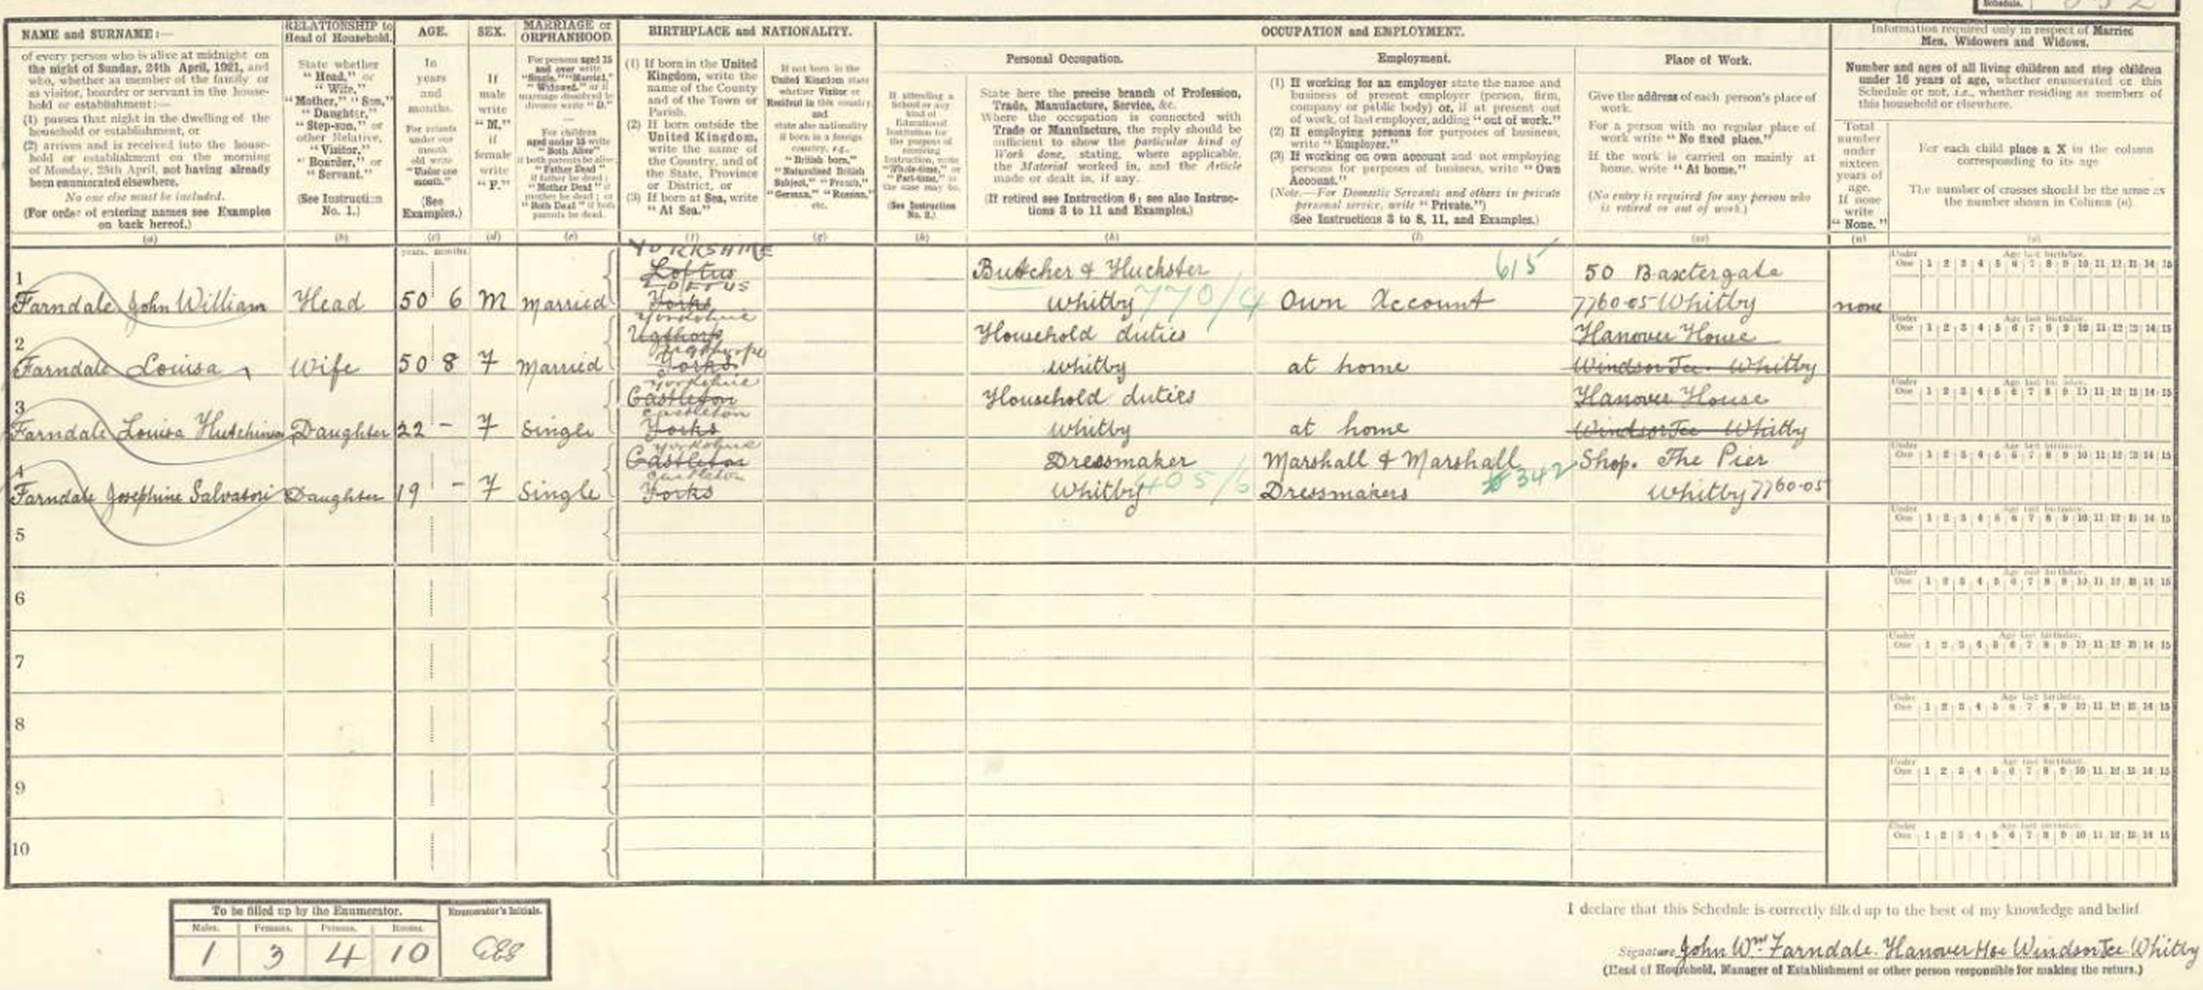 Schedule.
NAME and SURNAME:—
of every person who is alive at midnight on
the night of Sunday, 24th April, 1921, and
who, whether as member of the family or
as visitor, boarder or servant in the house-
hold or establishment:—
(1) passes that night in the dwelling of the
household or establishment, or
(2) arrives and is received into the house-
hold or establishment on the morning
of Monday, 25th April, not having already
been enumerated elsewhere.
No one else must be included.
(For order of entering names see Examples
on back hereof.)
(a)
RELATIONSHIP to
Head of Household.
State whether
"Head," or
"Wife,"
"Mother," "Son,"
"Daughter,"
"Step-son," or
other Relative,
"Visitor,"
"Boarder," or
"Servant."
(See Instruction
No. 1.)
(b)
AGE.
In
years
and
months.
For infants
under one
month
old write
"Under one
month."
(See
Examples.)
(c)
SEX.
If
male
write
"M."
if
female
write
"F."
(d)
MARRIAGE or
ORPHANHOOD.
For persons aged 15
and over write
"Single," "Married,"
"Widowed," or if
marriage dissolved by
divorce write "D."
For children
aged under 15 write
"Both Alive"
if both parents be alive
"Father Dead" if
father be dead;
"Mother Dead" if
mother be dead; or
"Both Dead" if both
parents be dead.
(e)
BIRTHPLACE and NATIONALITY.
(1) If born in the United
Kingdom, write the
name of the County
and of the Town or
Parish.
(2) If born outside the
United Kingdom,
write the name of
the Country, and of
the State, Province
or District, or
(3) If born at Sea, write
"At Sea."
(f)
If not born in the
United Kingdom state
whether Visitor or
Resident in this country,
and
state also nationality
if born in a foreign
country, e.g.,
"British born,"
"Naturalised British
Subject," "French,"
"German," "Russian,"
etc.
(g)
If attending a
School or any
kind of
Educational
Institution for
the purpose of
receiving
instruction, write
"Whole-time," or
"Part-time," as
the case may be.
(See Instruction
No. 2.)
(h)
OCCUPATION and EMPLOYMENT.
Personal Occupation.
State here the precise branch of Profession,
Trade, Manufacture, Service, &c.
Where the occupation is connected with
Trade or Manufacture, the reply should be
sufficient to show the particular kind of
Work done, stating, where applicable,
the Material worked in, and the Article
made or dealt in, if any.
(If retired see Instruction 6; see also Instruc-
tions 3 to 11 and Examples.)
Employment.
(1) If working for an employer state the name and
business of present employer (person, firm,
company or public body) or, if at present out
of work, of last employer, adding "out of work."
(2) If employing persons for purposes of business,
write "Employer."
(3) If working on own account and not employing
persons for purposes of business, write "Own
Account."
(Note.—For Domestic Servants and others in private
personal service, write "Private.")
(See Instructions 3 to 8, 11, and Examples.)
(l)
Place of Work.
Give the address of each person's place of
work.
For a person with no regular place of
work write "No fixed place."
If the work is carried on mainly at
home, write "At home."
(No entry is required for any person who
is retired or out of work.)
(m)
Information required only in respect of Married
Men, Widowers and Widows.
Number and ages of all living children and step children
under 16 years of age, whether enumerated on this
Schedule or not, i.e., whether residing as members of
this household or elsewhere.
Total
number
under
sixteen
years of
age.
If none
write
"None."
(n)
For each child place a X in the column
corresponding to its age
The number of crosses should be the same as
the number shown in Column (n).
(o)
years. months.
1
Farndale John William Head 50 6 M Married
YORKSHIRE
Loftus
LOFTUS
Yorks
Butcher & Huckster 615 50 Baxtergate
Whitby 770/4 Own Account 7760-05 Whitby none
2
Farndale Louisa Wife 50 8 F Married
Yorkshire
Ugthorpe
Ugthorpe
Yorks
Household duties Hanover House
Whitby at home Windsor Tce. Whitby
3
Farndale Louisa Hutchinson Daughter 22 - F Single
Yorkshire
Castleton
Castleton
Yorks
Household duties Hanover House
Whitby at home Windsor Tce Whitby
4
Farndale Josephine Salvatori Daughter 19 - F Single
Yorkshire
Castleton
Castleton
Yorks
Dressmaker Marshall & Marshall Shop. The Pier
Whitby 405/6 Dressmakers 342 Whitby 7760-05
5
6
7
8
9
10
Under One Age last birthday.
1 2 3 4 5 6 7 8 9 10 11 12 13 14 15
To be filled up by the Enumerator.
Males. Females. Persons. Rooms.
1 3 4 10
Enumerator's Initials.
I declare that this Schedule is correctly filled up to the best of my knowledge and belief
Signature John Wm Farndale. Hanover Hse Windsor Tce Whitby
(Head of Household, Manager of Establishment or other person responsible for making the return.)